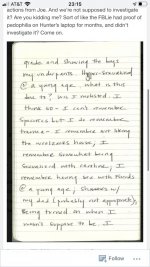 AT&T
23:15
actions from Joe. And we're not supposed to investigate
it? Are you kidding me? Sort of like the FBI,ie had proof of
pedophilia on Hunter's laptop for months, and didn't
investigate it? Come on.
grade and showing the boys
my underpants. Hyper-sexualized
@ a young age. what is this
due to? was I molested. I
think so - I can't remember
specifics but I do remember
trauma - I remember not liking
the house, I
remember somewhat being
sexualized with, I
remember having sex with friends
@ a young age; showers w/
my dad (probably not appropriate).
Being turned on when I
wasn't suppose to be. I
Follow